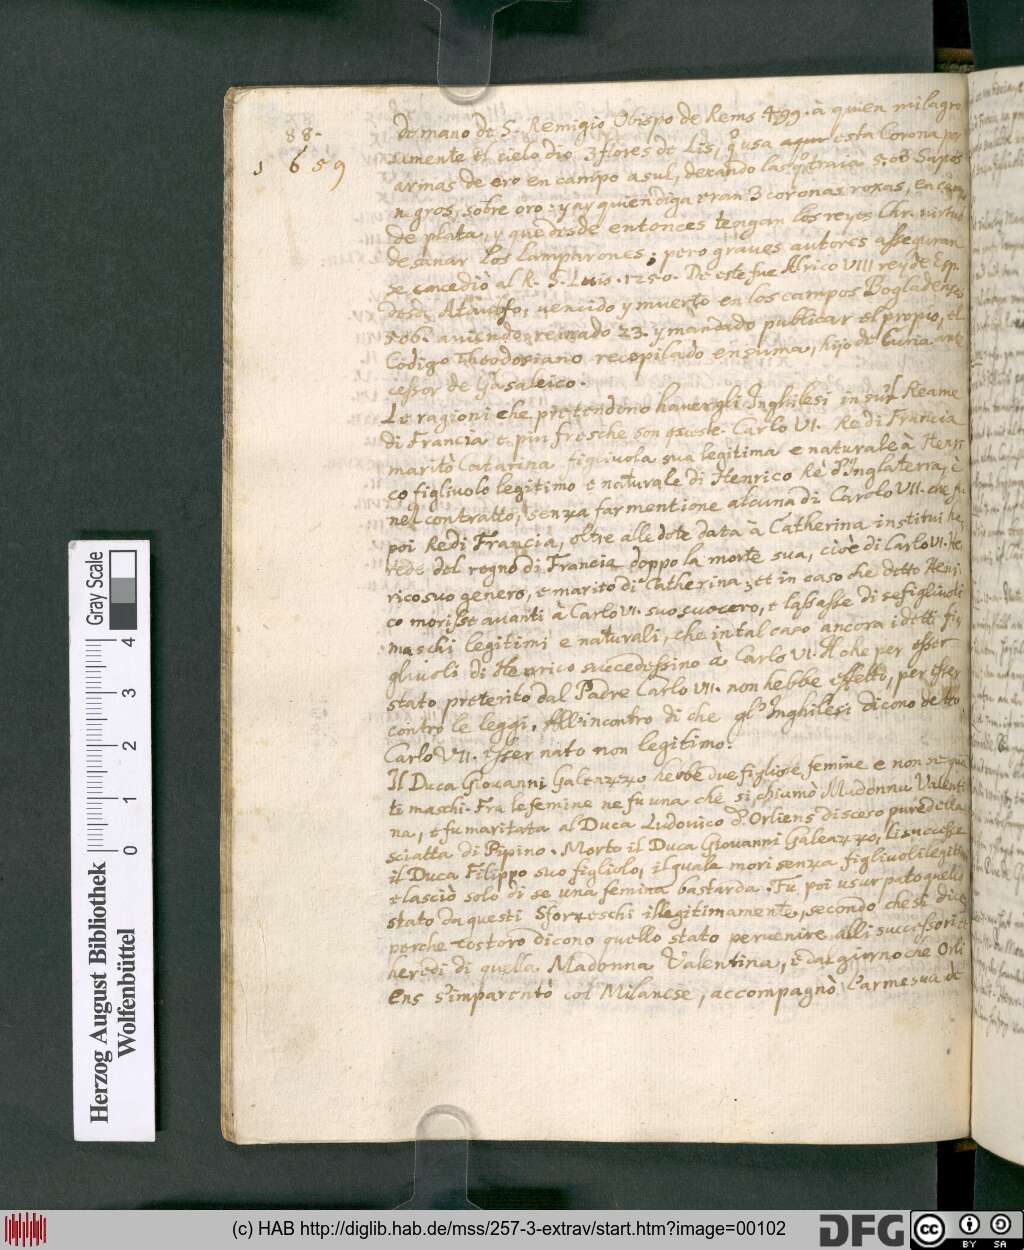 88.
1659
de mano de S. Remigio Obispo de Rems 499. à quien milagro
samente el cielo dio 3 flores de Lis, q̃ usa esta Corona por
armas de oro en campo asul, dexando las q̃ traia 5. ò 8 Sapos
negros, sobre oro: y ay quien diga eran 3 coronas roxas, en campo
de plata, y que desde entonces tengan los reyes Chr. virtud
de sanar los lamparones; pero graves autores asseguran
se concediò al R. S. Luis. 1250. De este fue Alrico VIII rey de Esp.
desde Ataulfo, vencido y muerto en los campos Bogladenses
506. aviendo reinado 23. y mandado publicar el propio, el
Codigo Theodosiano recopilado en suma, hijo de Curia ante
cessor de Gasaleico.
Le ragioni che pretendono haver gli Inghilesi in sul Reame
di Francia e piu fresche son queste. Carlo VI. Re di Francia
maritò Catarina figlivola sua legitima e naturale à Henri
co figlivolo legitimo e naturale di Henrico Rè d'Inglaterra, è
nel contratto, senza far mentione alcuna di Carolo VII. che fu
poi Re di Francia, oltre alle dote data à Catherina institui he
rede del regno di Francia doppo la morte sua, cioè di Carlo VI. He
rico suo genero, e marito di Catherina, et in caso che detto Henri
co morisse avanti à Carlo VI. suo suocero, e lassasse di se figlivoli
maschi legitimi e naturali, che in tal caso ancora i detti fi
glivoli di Henrico succedessino à Carlo VI. Il che per esser
stato preterito dal Padre Carlo VII. non hebbe effetto, per esser
contro le leggi. All'incontro di che gl' Inghilesi dicono detto
Carlo VII. esser nato non legitimo.
Il Duca Giovanni Galeazzo hebbe due figliole femine e non so quan
ti maschi. Fra le femine ne fu una che si chiamò Madonna Valenti
na, e fu maritata al Duca Ludovico d'Orliens discero pure della
sciatta di Pipino. Morto il Duca Giovanni Galeazzo, li successe
il Duca Filippo suo figliolo, il quale mori senza figlivoli legitimi
e lasciò solo di se una femina bastarda. Fu poi usurpato quello
stato da questi Sforzeschi illegitimamente, secondo che si dice
perche costoro dicono quello stato pervenire alli successori et
heredi di quella Madonna Valentina, e dal giorno che Orli
ens s'imparentò col Milanese, accompagnò l'arme sua de
Herzog August Bibliothek
Wolfenbüttel
Gray Scale
0 1 2 3 4
(c) HAB http://diglib.hab.de/mss/257-3-extrav/start.htm?image=00102
DFG
cc BY SA